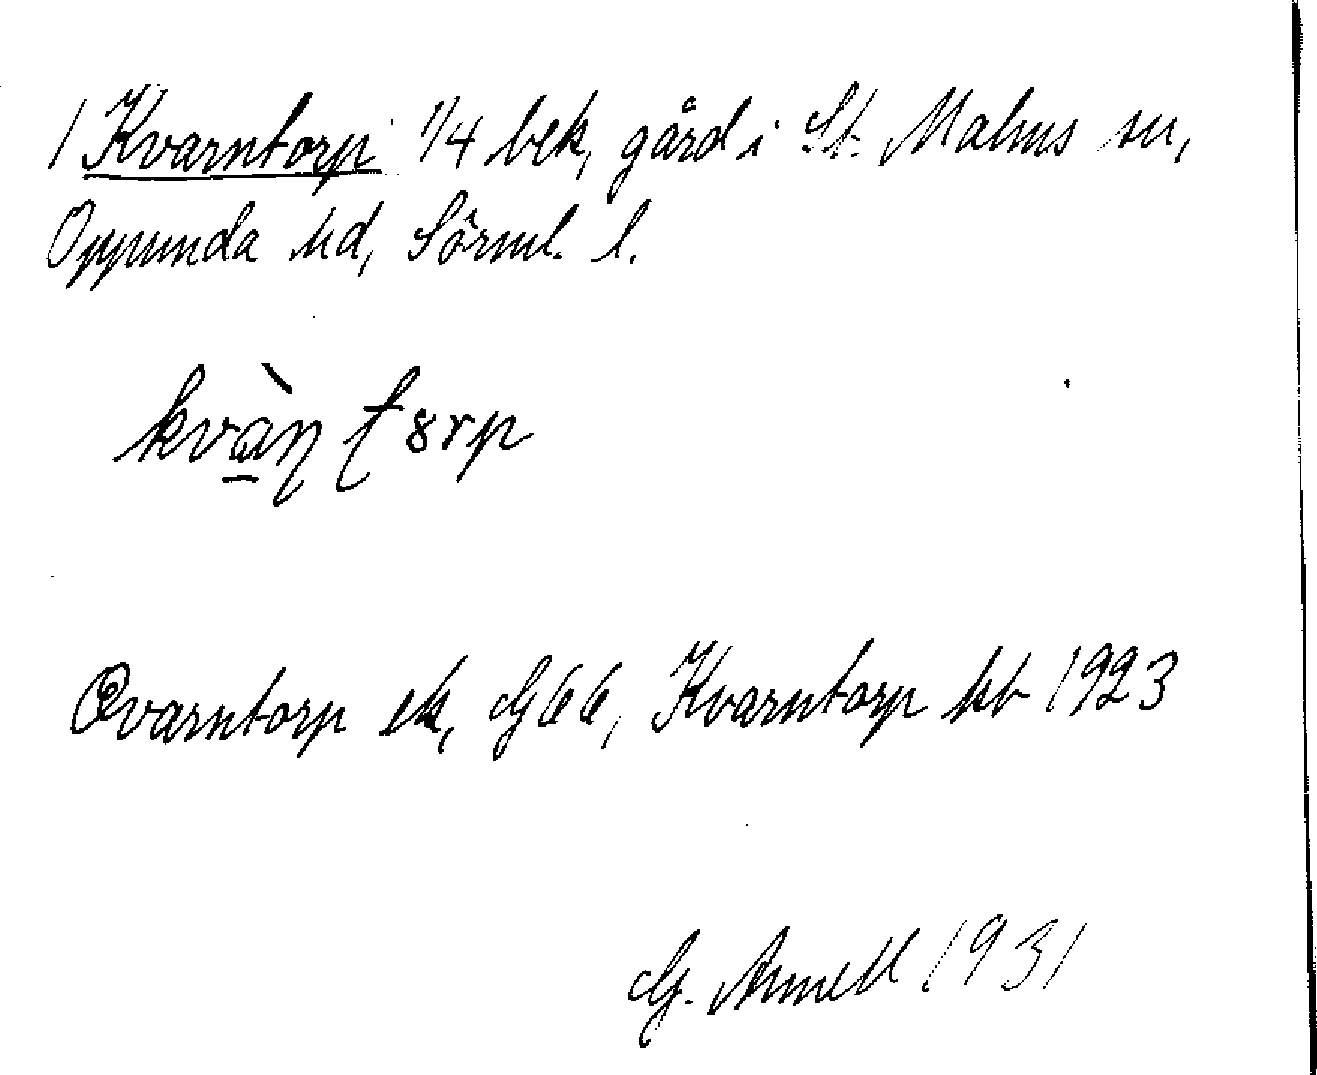 1 Kvarntorp 1/4 bek, gård i St. Malms sn,
Oppunda hd, Sörml. l.
kvàn torp
Qvarntorp ek, G66, Kvarntorp kb 1923
G. Arnell 1931